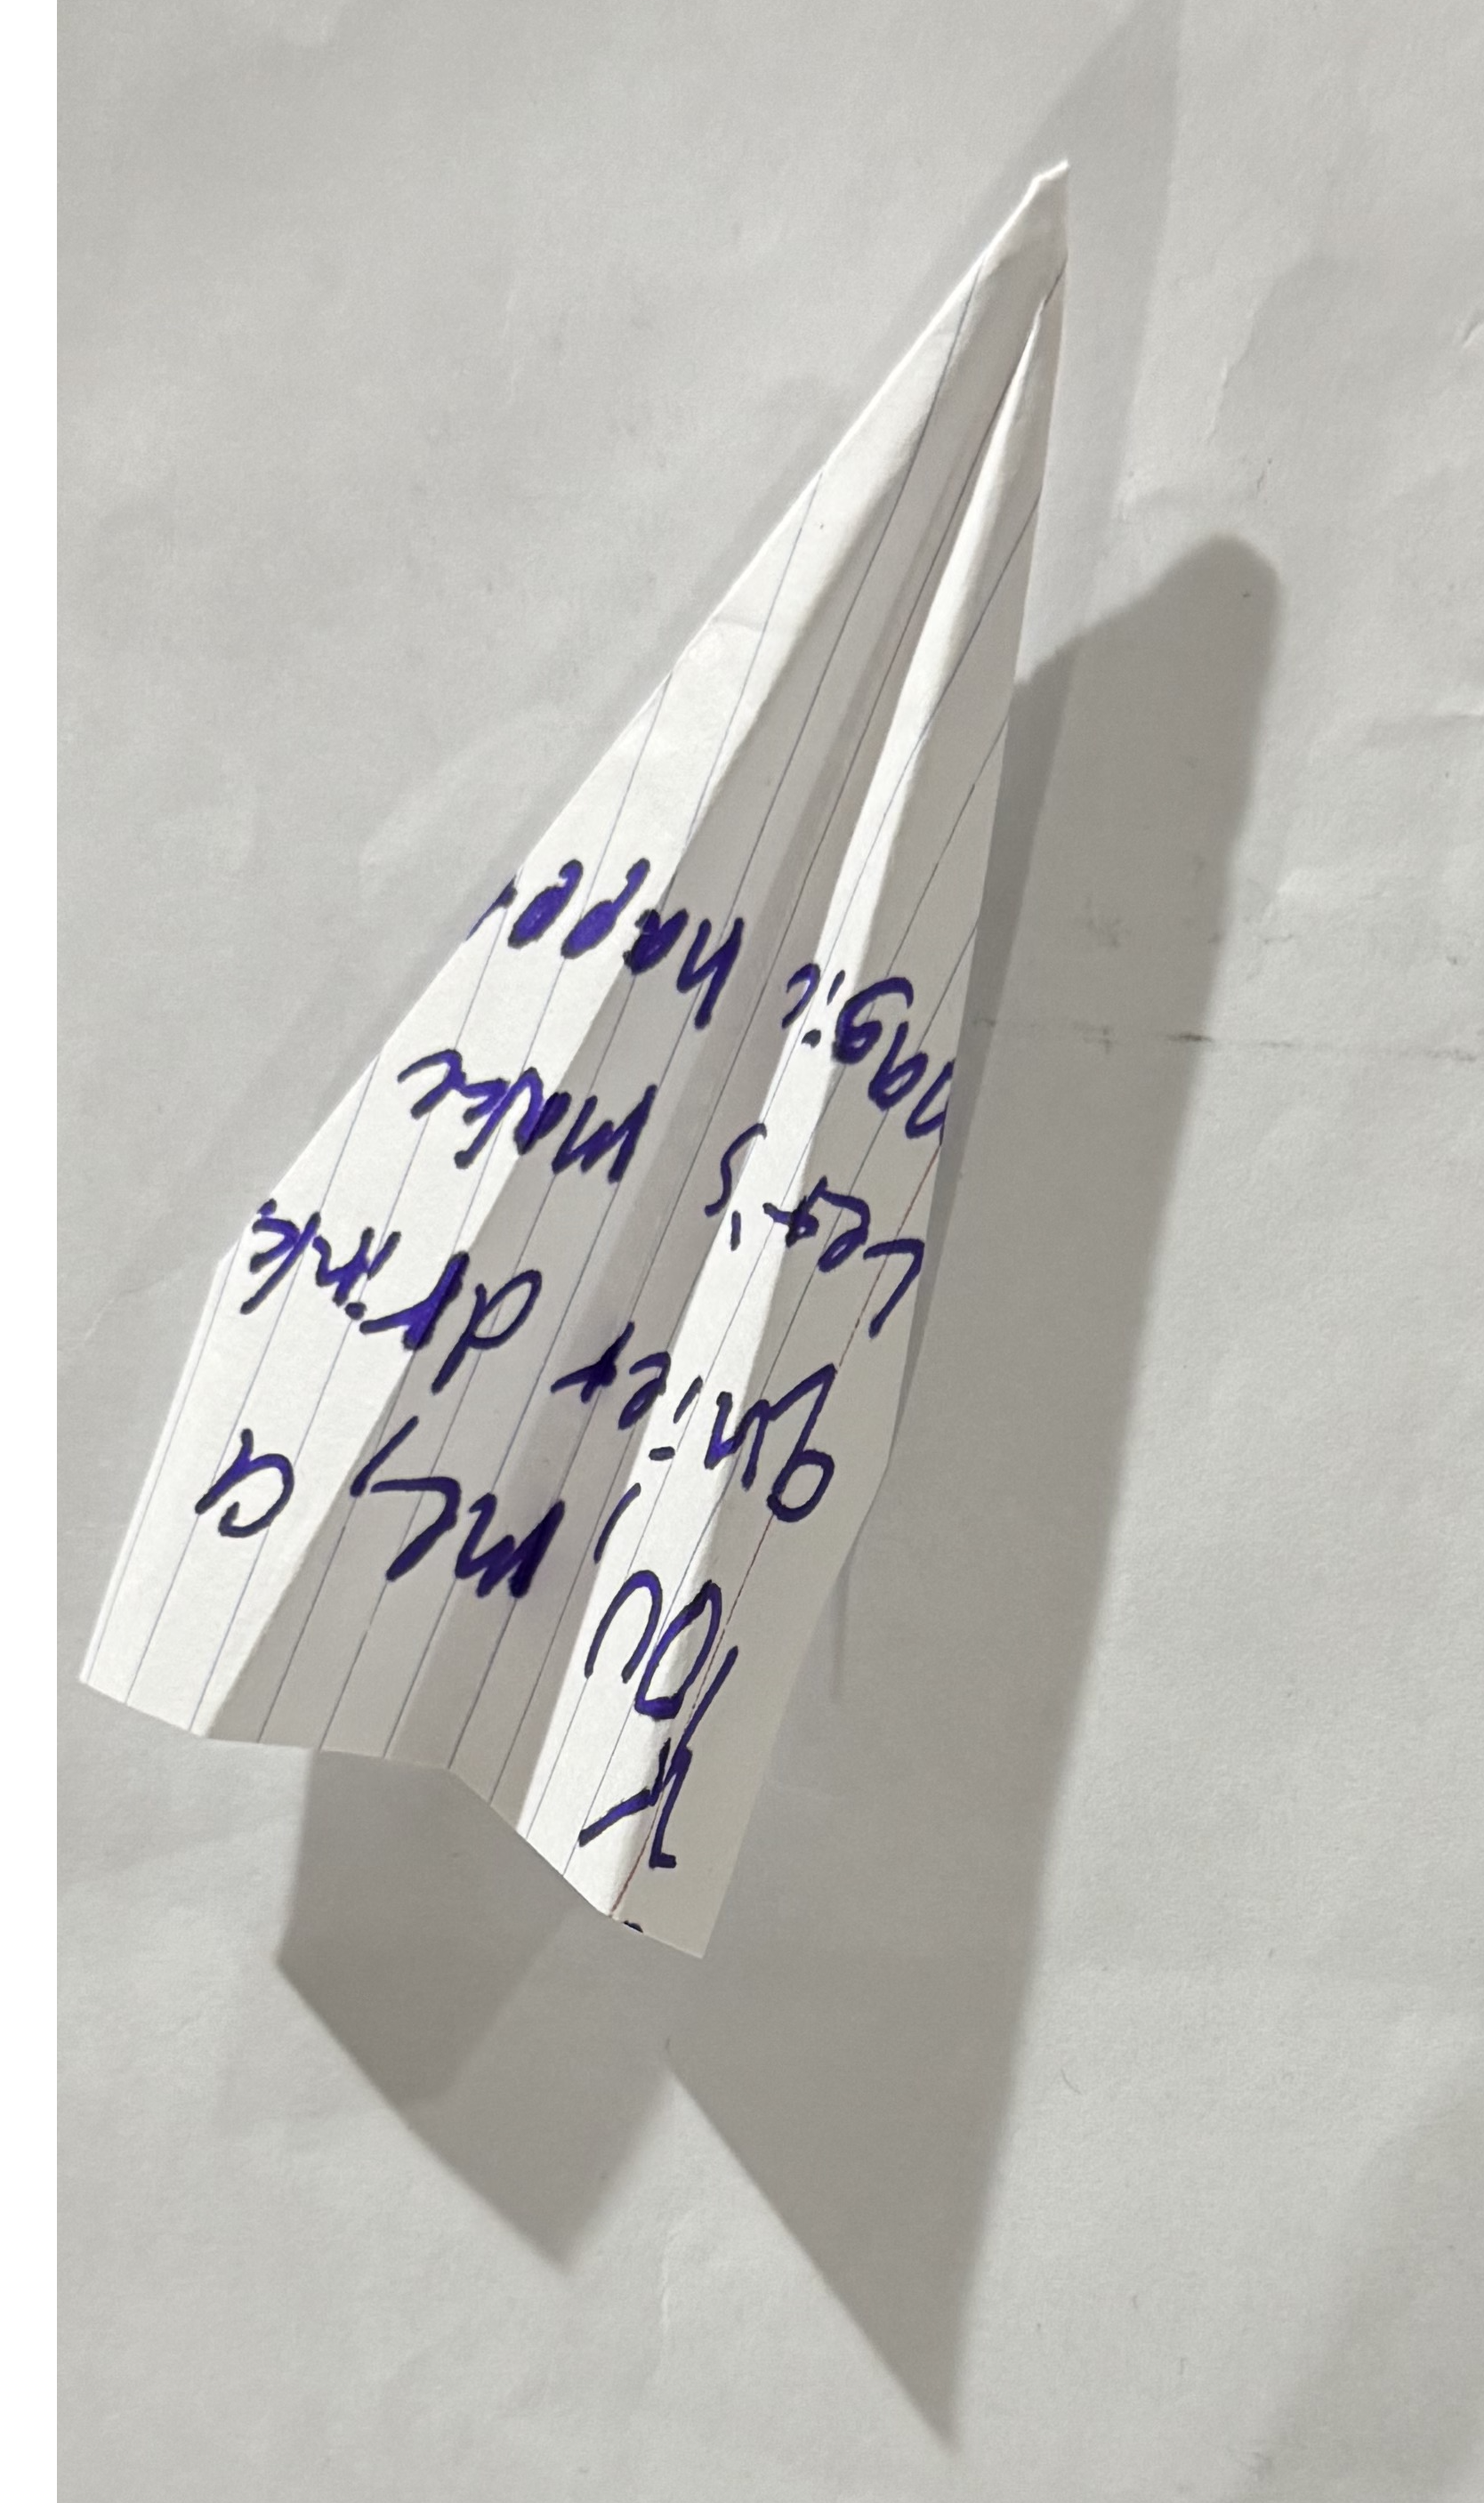 You, me, a
quiet drink
Let's make
magic happe